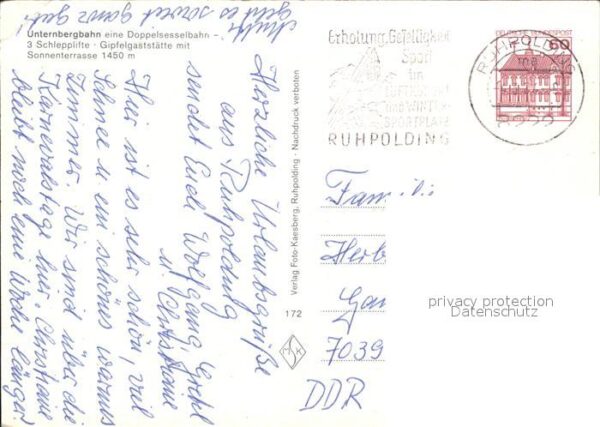 Unternbergbahn eine Doppelsesselbahn -
3 Schlepplifte · Gipfelgaststätte mit
Sonnenterrasse 1450 m
Herzliche Urlaubsgrüße
aus Ruhpolding
sendet Euch Wolfgang, Gretel
u. Christiane
Hier ist es sehr schön, viel
Schnee u. ein schönes warmes
Zimmer. Wir sind über die
Karnevalstage hier. Christiane
bleibt noch eine Woche länger
geht es soweit ganz gut.
Verlag Foto-Kaesberg, Ruhpolding · Nachdruck verboten
172
Erholung, Geselligkeit
Sport
im
LUFTKURORT
und WINTER-
SPORTPLATZ
RUHPOLDING
DEUTSCHE BUNDESPOST
60
RUHPOLDING
Familie
Herb
Gar
7039
DDR
privacy protection
Datenschutz